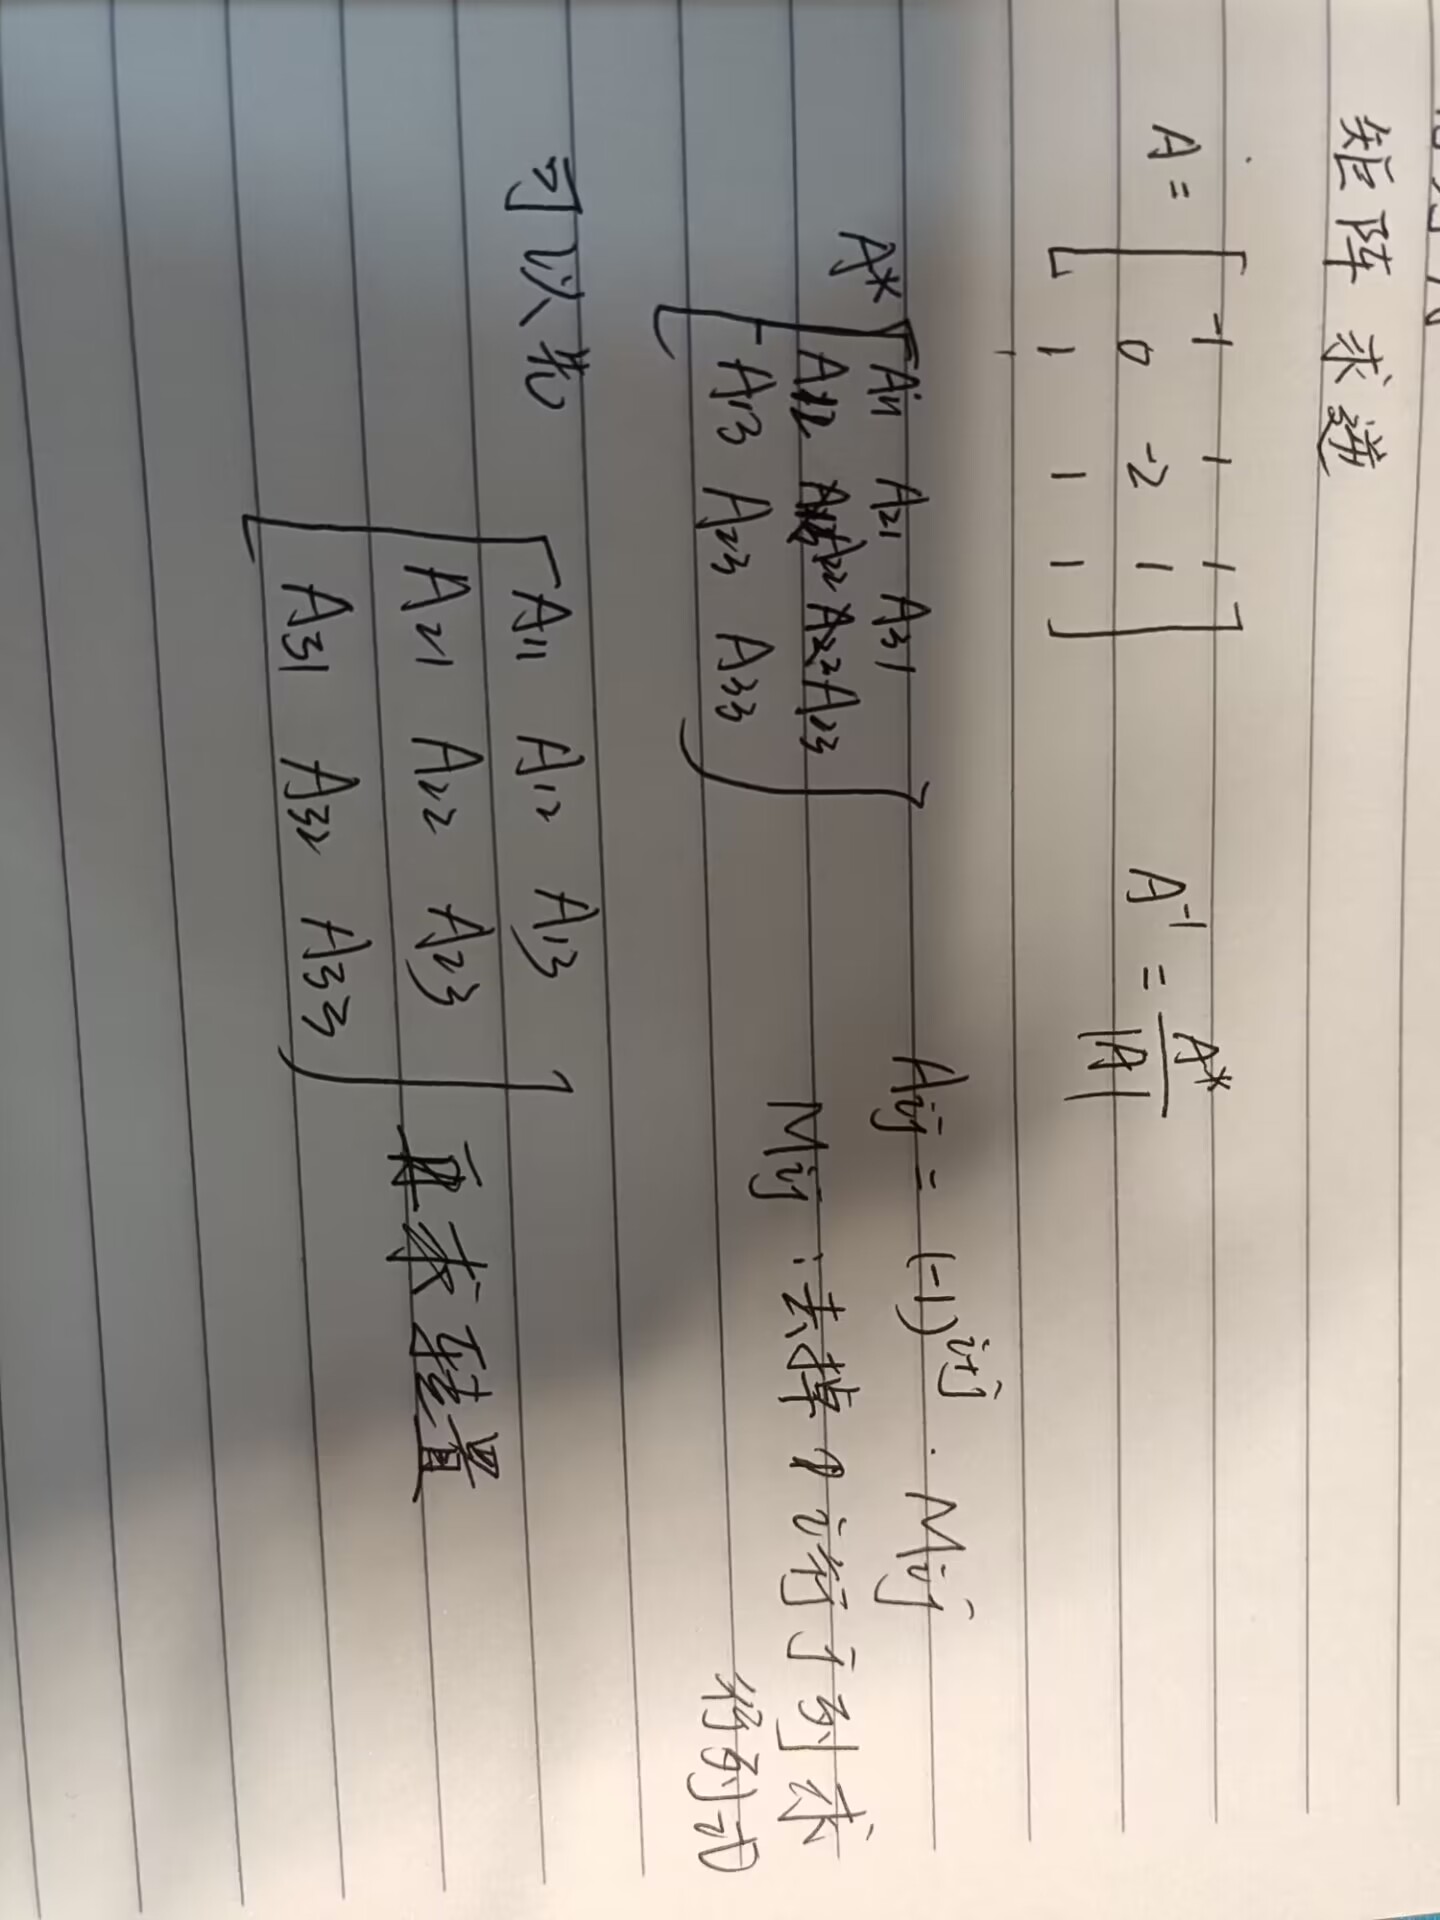 矩阵求逆
A = [ -1 1 1
0 -2 1
1 1 1 ]
A^-1 = A* / |A|
A* [ A11 A21 A31
A12 A22 A23
A13 A23 A33 ]
Aij = (-1)^i+j · Mij
Mij : 去掉 i行 j列 求
行列式
可以先 [ A11 A12 A13
A21 A22 A23
A31 A32 A33 ] 再求转置